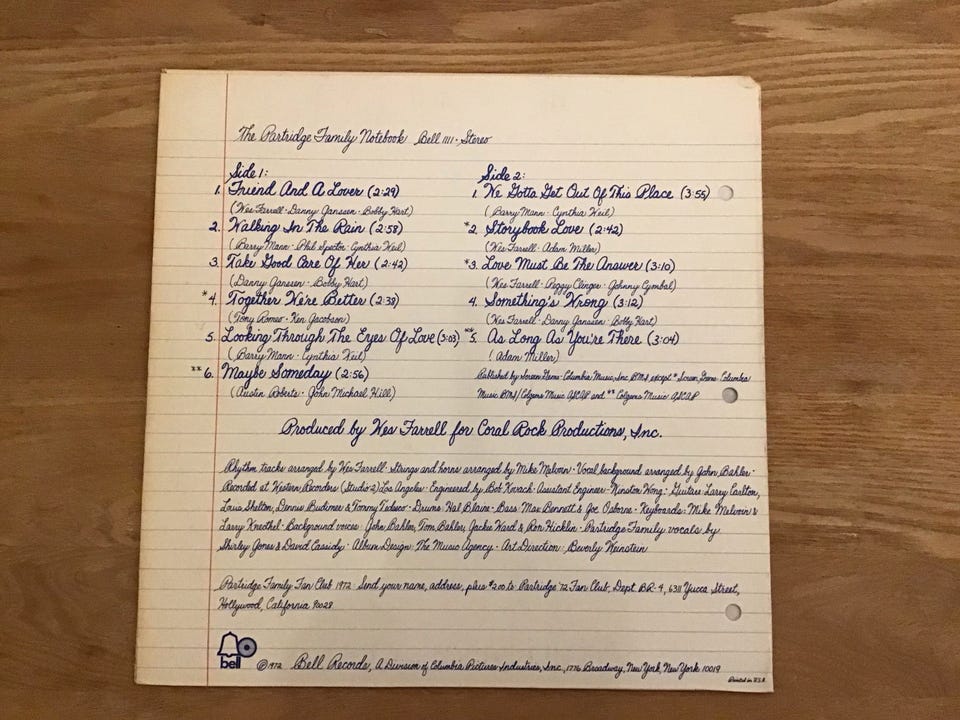 The Partridge Family Notebook Bell 1111 · Stereo
Side 1:
1. Friend And A Lover (2:29)
(Wes Farrell · Danny Janssen · Bobby Hart)
2. Walking In The Rain (2:58)
(Barry Mann · Phil Spector · Cynthia Weil)
3. Take Good Care Of Her (2:42)
(Danny Janssen · Bobby Hart)
*4. Together We're Better (2:38)
(Tony Romeo · Ken Jacobson)
5. Looking Through The Eyes Of Love (3:03)
(Barry Mann · Cynthia Weil)
**6. Maybe Someday (2:56)
(Austin Roberts · John Michael Hill)
Side 2:
1. We Gotta Get Out Of This Place (3:55)
(Barry Mann · Cynthia Weil)
*2. Storybook Love (2:42)
(Wes Farrell · Adam Miller)
*3. Love Must Be The Answer (3:10)
(Wes Farrell · Peggy Clinger · Johnny Cymbal)
4. Something's Wrong (3:12)
(Wes Farrell · Danny Janssen · Bobby Hart)
**5. As Long As You're There (3:04)
(Adam Miller)
Published by Screen Gems-Columbia Music, Inc. BMI, except * Screen Gems-Columbia
Music BMI/Colgems Music ASCAP and ** Colgems Music ASCAP
Produced by Wes Farrell for Coral Rock Productions, Inc.
Rhythm tracks arranged by Wes Farrell · Strings and horns arranged by Mike Melvoin · Vocal background arranged by John Bahler ·
Recorded at Western Recorders (Studio 2) Los Angeles · Engineered by Bob Kovach · Assistant Engineer · Winston Wong · Guitars: Larry Carlton,
Louis Shelton, Dennis Budimer & Tommy Tedesco · Drums: Hal Blaine · Bass: Max Bennett & Joe Osborne · Keyboards: Mike Melvoin &
Larry Knechtel · Background voices: John Bahler, Tom Bahler, Jackie Ward & Ron Hicklin · Partridge Family vocals by
Shirley Jones & David Cassidy · Album Design: The Music Agency · Art Direction: Beverly Weinstein
Partridge Family Fan Club 1972: Send your name, address, plus $2.00 to Partridge '72 Fan Club, Dept. BR-4, 6311 Yucca Street,
Hollywood, California 90028
bell
©1972 Bell Records, A Division of Columbia Pictures Industries, Inc., 1776 Broadway, New York, New York 10019
Printed in U.S.A.